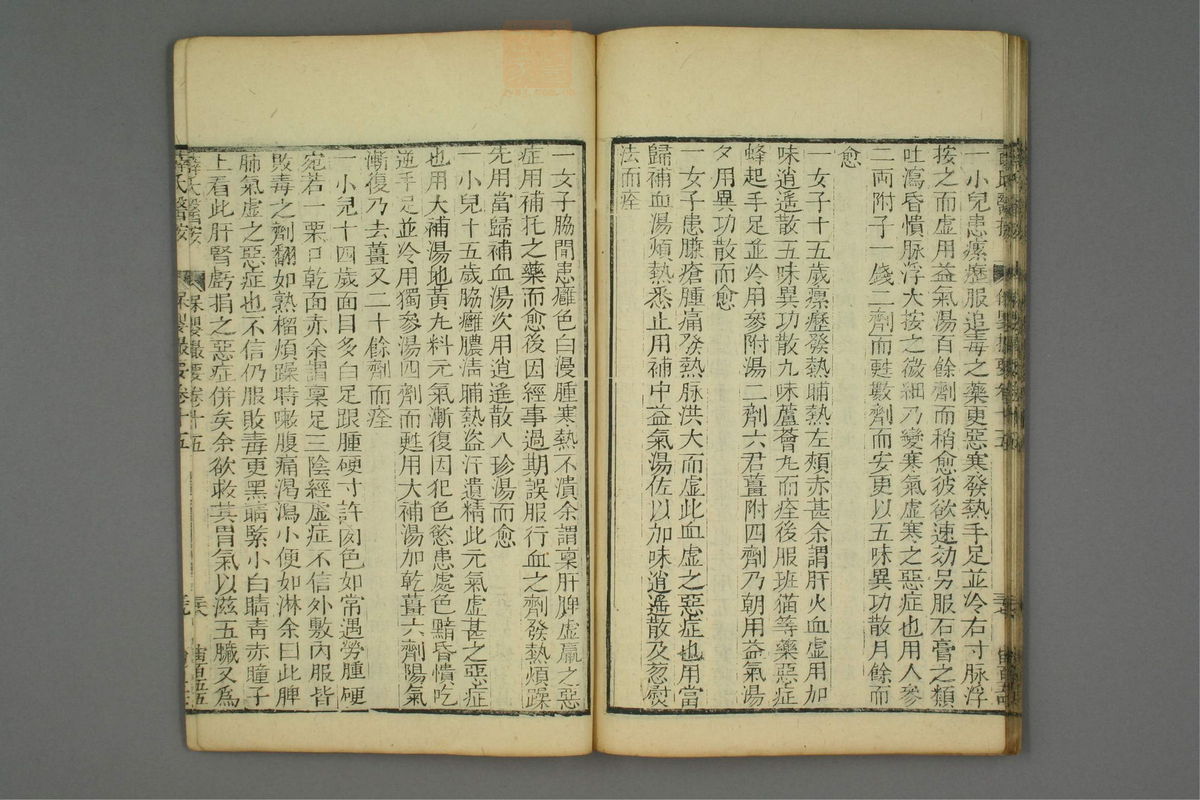 一小兒患瘰癧服追毒之藥更惡寒發熱手足並冷右寸脉浮
按之而虛用益氣湯百餘劑而稍愈彼欲速効另服石膏之類
吐瀉昏憒脉浮大按之微細乃變寒氣虛寒之惡症也用人參
二両附子一錢二劑而甦數劑而安更以五味異功散月餘而
愈
一女子十五歲瘰癧發熱晡熱左頰赤甚余謂肝火血虛用加
味逍遙散五味異功散九味蘆薈丸而痊後服班猫等藥惡症
蜂起手足並冷用參附湯二劑六君薑附四劑乃朝用益氣湯
夕用異功散而愈
一女子患臁瘡腫痛發熱脉洪大而虛此血虛之惡症也用當
歸補血湯煩熱悉止用補中益氣湯佐以加味逍遙散及葱熨
法而痊
一女子脇間患癰色白漫腫寒熱不潰余謂稟肝脾虛羸之惡
症用補托之藥而愈後因經事過期誤服行血之劑發熱煩躁
先用當歸補血湯次用逍遙散八珍湯而愈
一小兒十五歲脇癰膿清晡熱盗汗遺精此元氣虛甚之惡症
也用大補湯地黃丸料元氣漸復因犯色慾患處色黯昏憒吃
逆手足並冷用獨參湯四劑而甦用大補湯加乾薑六劑陽氣
漸復乃去薑又二十餘劑而痊
一小兒十四歲面目多白足跟腫硬寸許肉色如常遇勞腫硬
宛若一栗口乾面赤余謂稟足三陰經虛症不信外敷內服皆
敗毒之劑翻如熟榴煩躁時嗽腹痛渴瀉小便如淋余曰此脾
肺氣虛之惡症也不信仍服敗毒更黑睛緊小白睛青赤瞳子
上看此肝腎虧損之惡症併矣余欲救其胃氣以滋五臟又爲
薛氏醫按 保嬰撮要卷十五